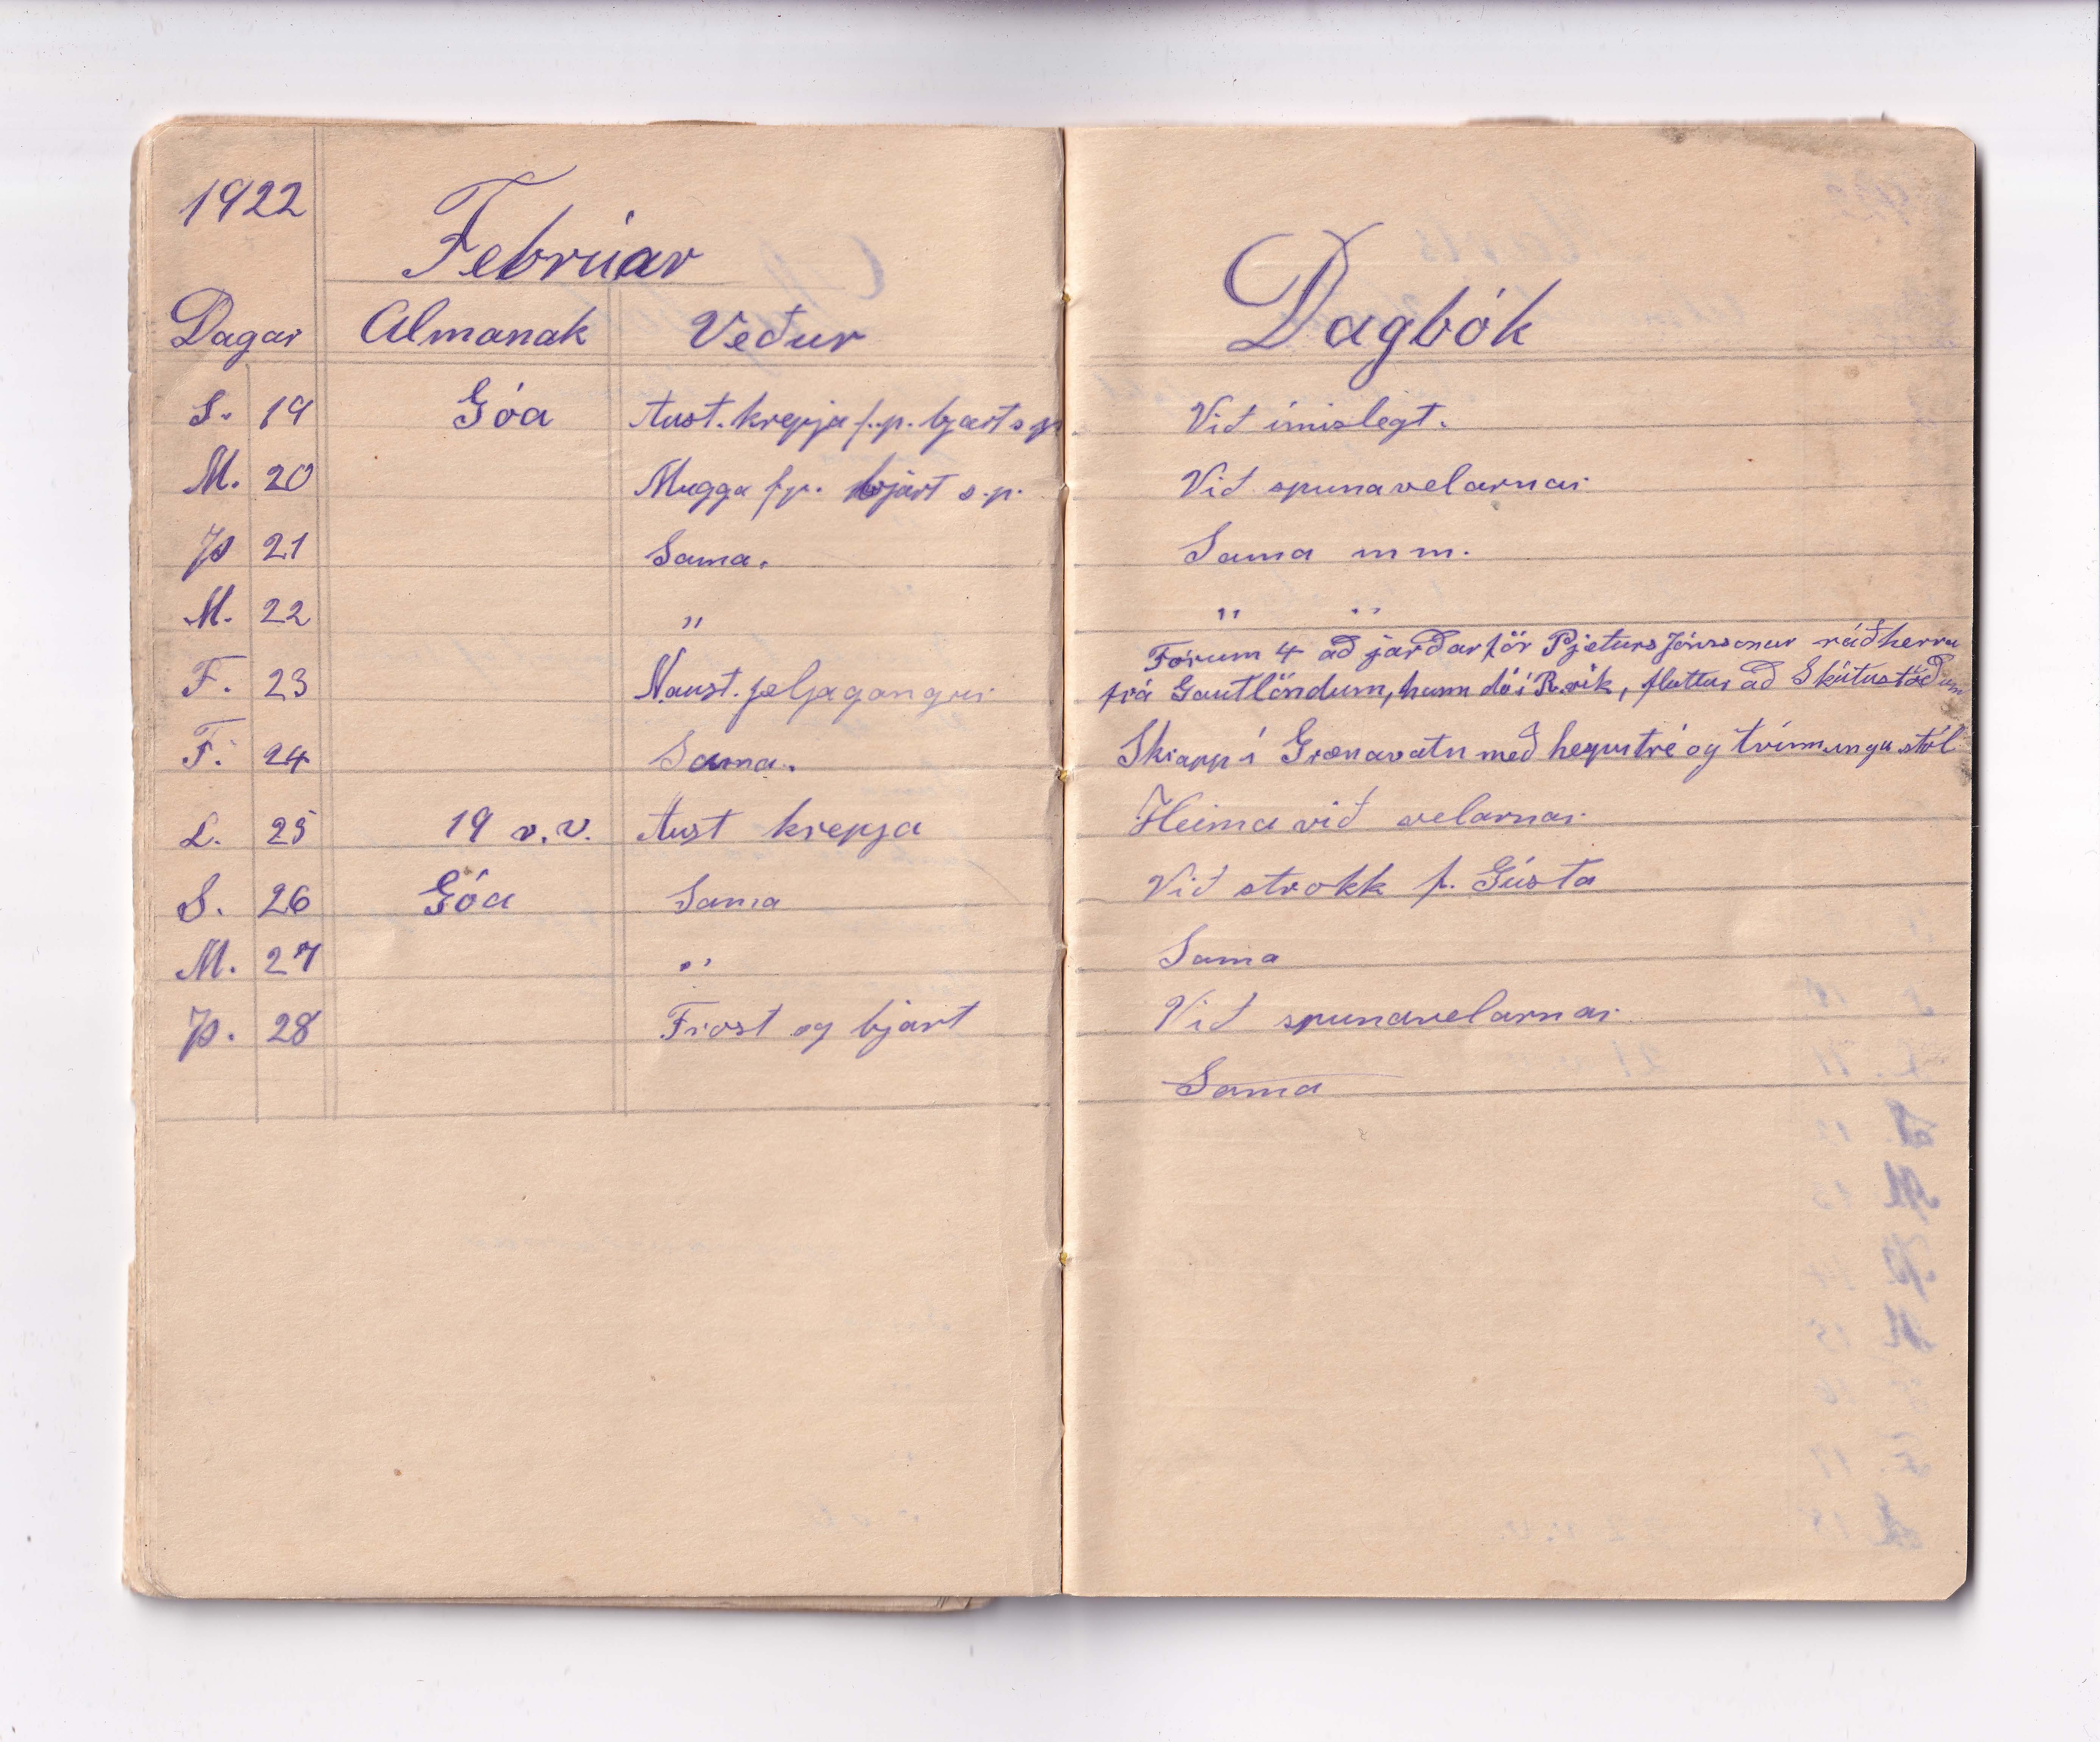 1922
Februar
Dagar Almanak Veður
S. 19 Góa Aust. krepja f.p. bjart s.p.
M. 20 Mugga f.p. bjart s.p.
Þ 21 Sama.
M. 22 "
F. 23 Naust. jeljagangur
F. 24 Sama.
L. 25 19 v.v. Aust krepja
S. 26 Góa Sama
M. 27 "
Þ. 28 Frost og bjart
Dagbók
Við ímislegt.
Við spunavelarnar
Sama m m.
" "
Fórum 4 að jarðarför Pjeturs Jónssonar ráðherra
frá Gautlöndum, hann dó í R.vik, fluttur að Skútustöðum
Skrapp í Grænavatn með hesputré og tvinningastól
Heima við velarnar
Við strokk f. Gústa
Sama
Við spunavelarnar
Sama